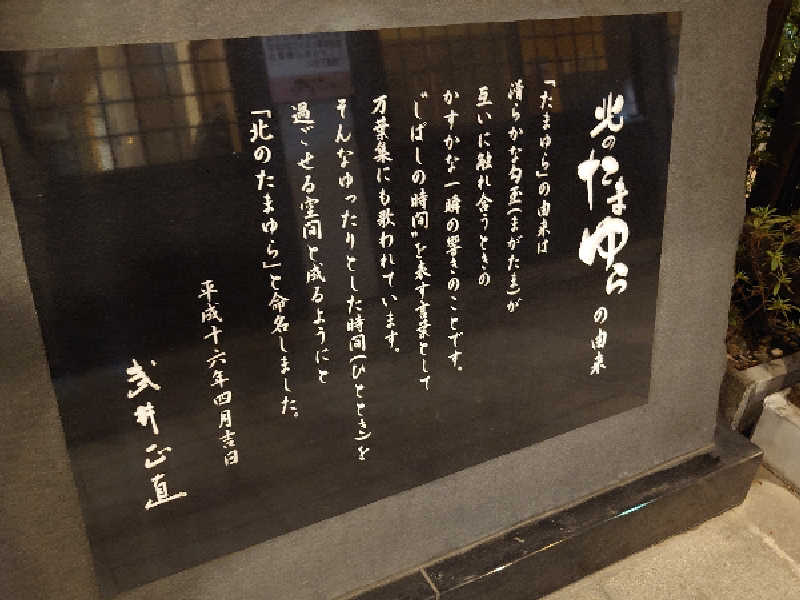 北のたまゆらの由来
「たまゆら」の由来は
滑らかな勾玉(まがたま)が
互いに触れ合うときの
かすかな一瞬の響きのことです。
"しばしの時間"を表す言葉として
万葉集にも歌われています。
そんなゆったりとした時間(ひととき)を
過ごせる空間と成るようにと
「北のたまゆら」と命名しました。
平成十六年四月吉日
浅井正直